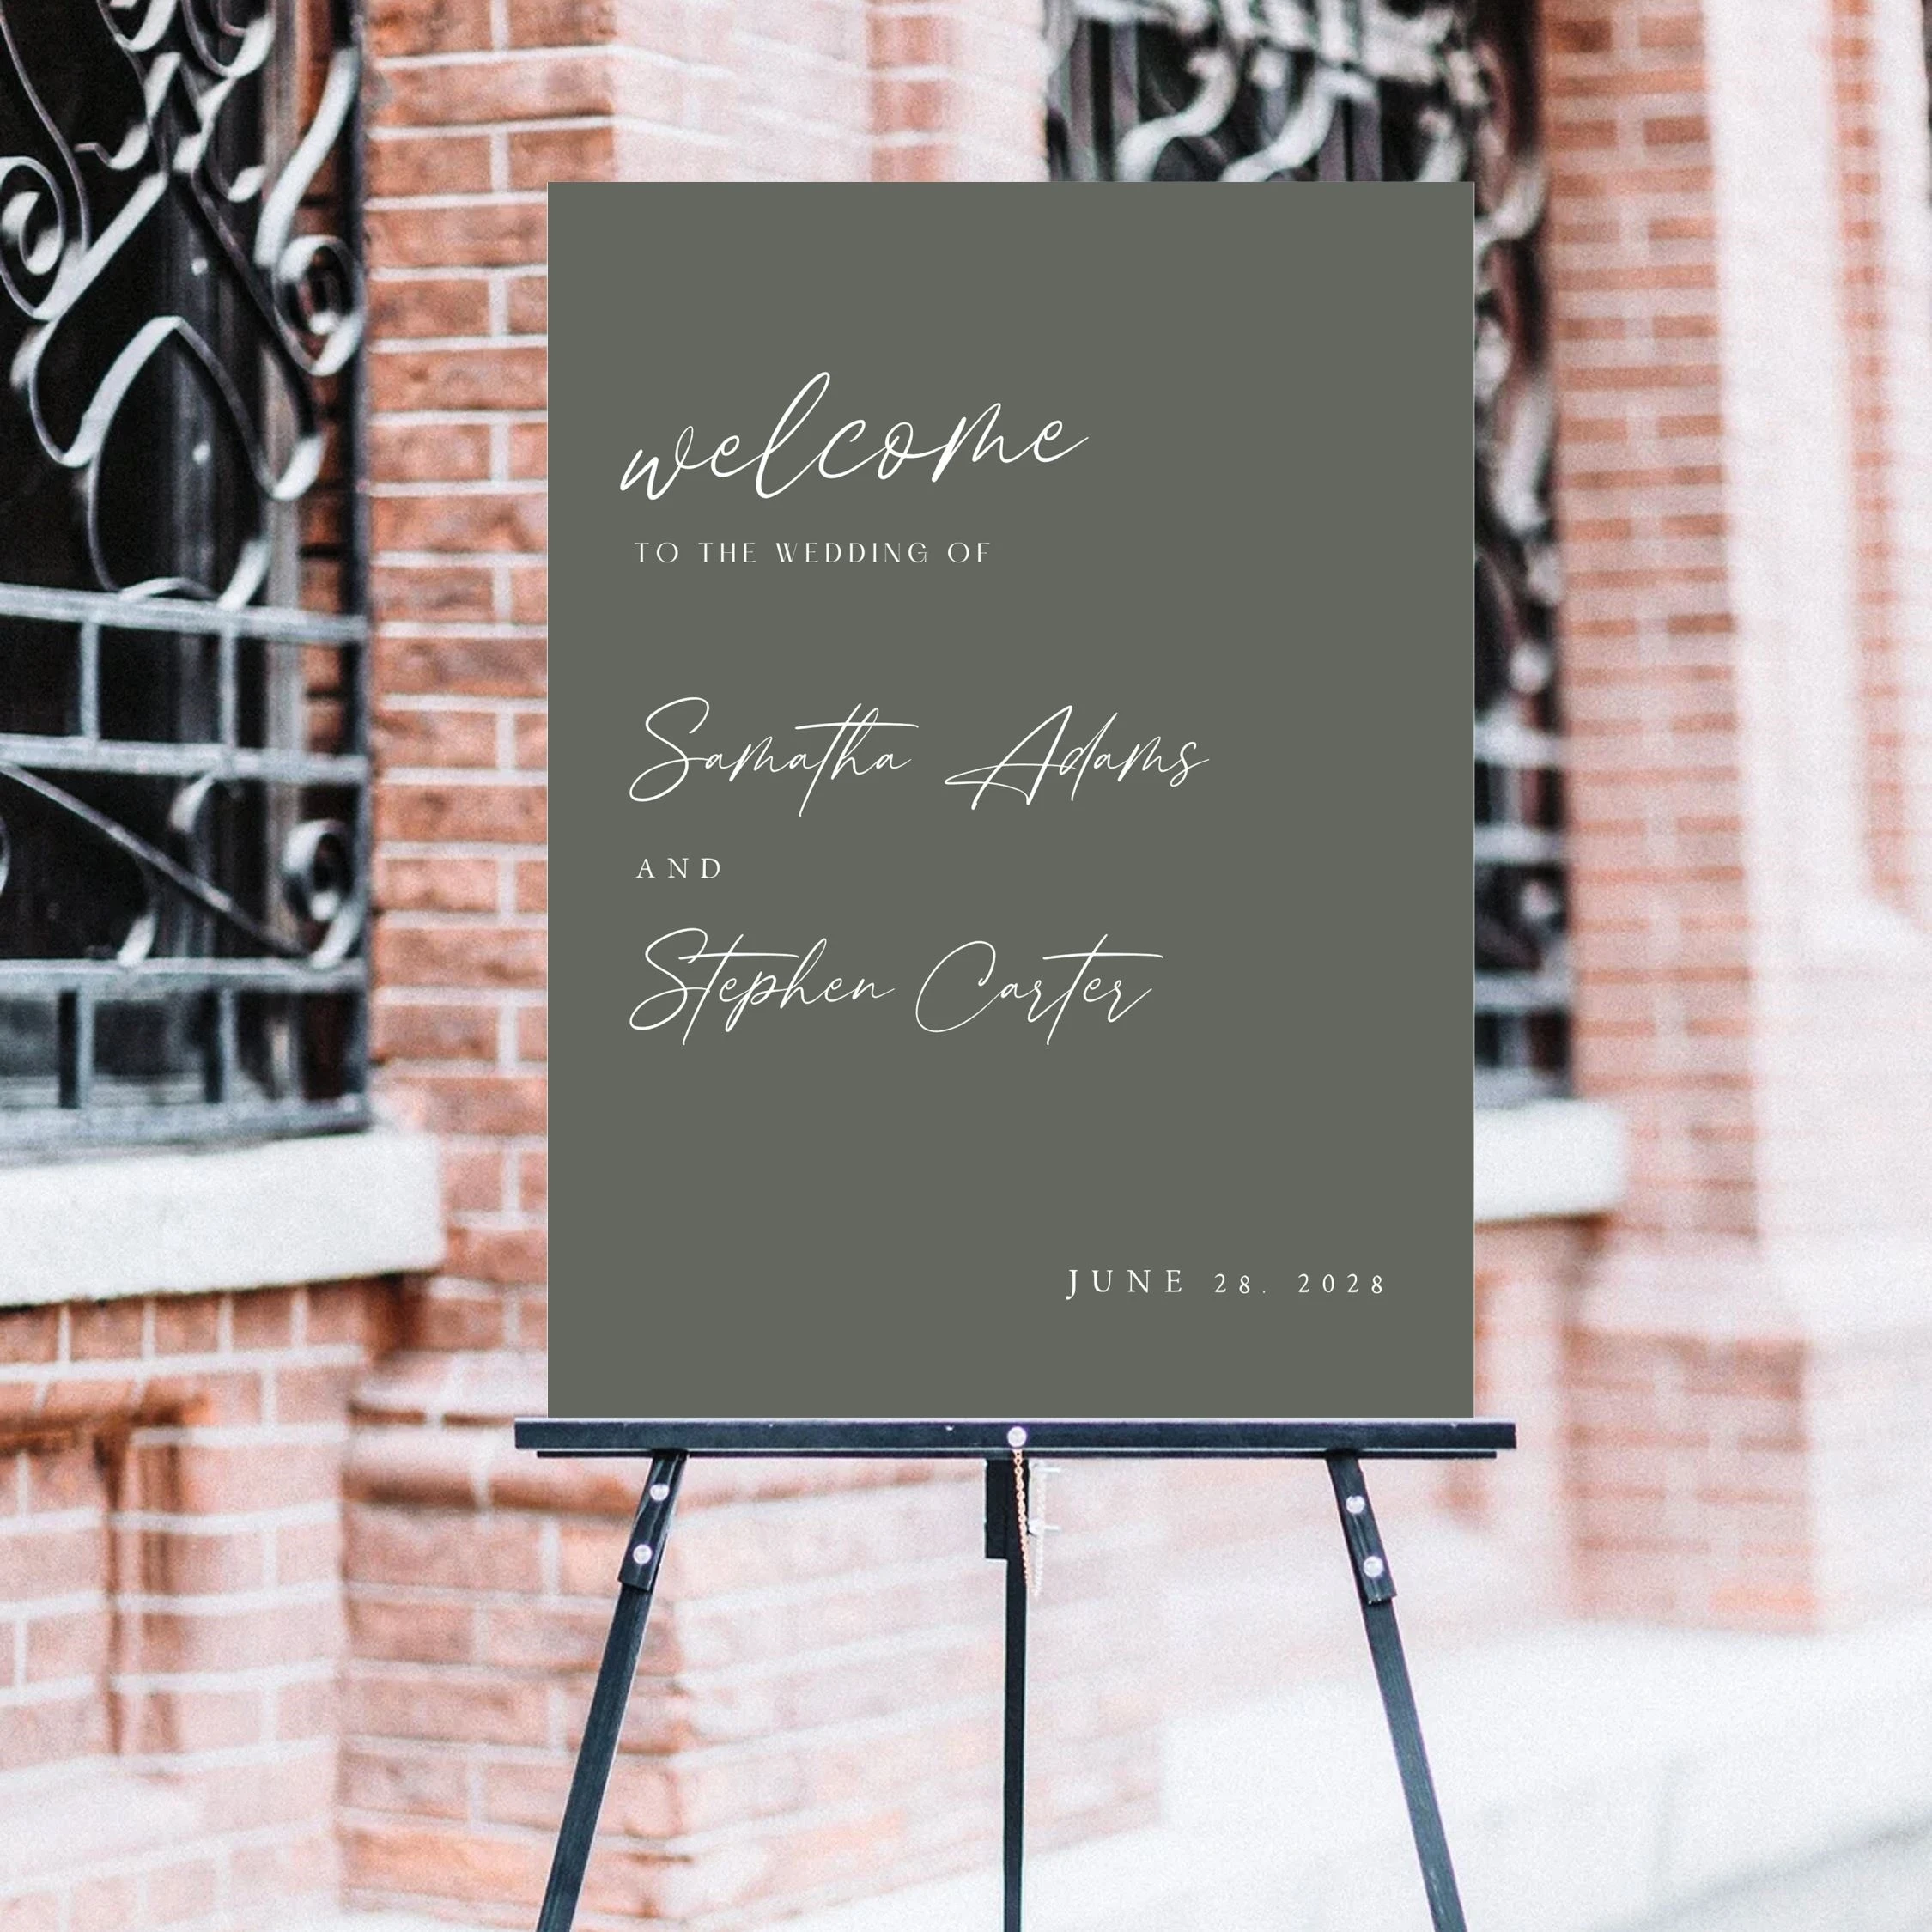 welcome
TO THE WEDDING OF
Samatha Adams
AND
Stephen Carter
JUNE 28. 2028